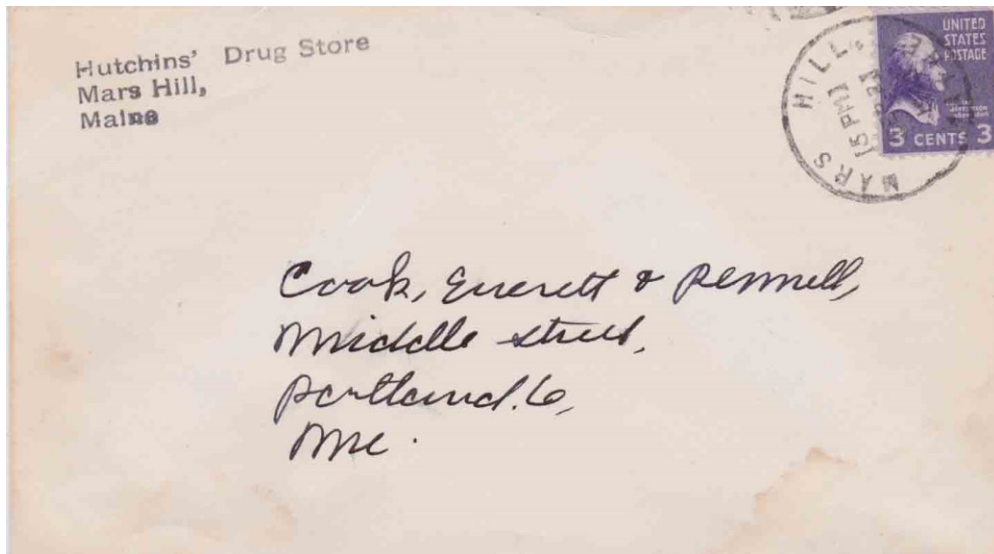 Hutchins' Drug Store
Mars Hill,
Maine
MARS HILL
15 PM
UNITED
STATES
POSTAGE
3 CENTS 3
Cook, Everett & Pennell,
Middle street,
Portland. 6,
Me.